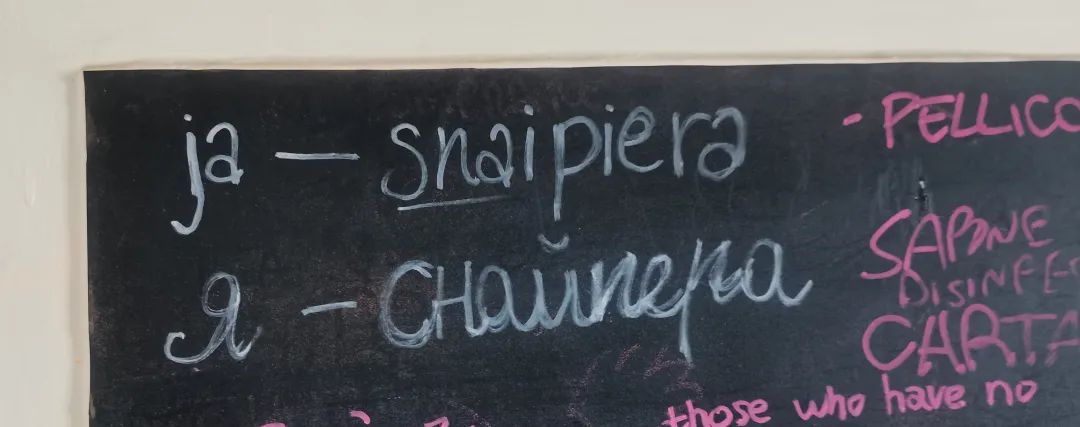 ja — snaipiera
- PELLICO
я - снайпера
SAPONE
DISINFE
CARTA
those who have no